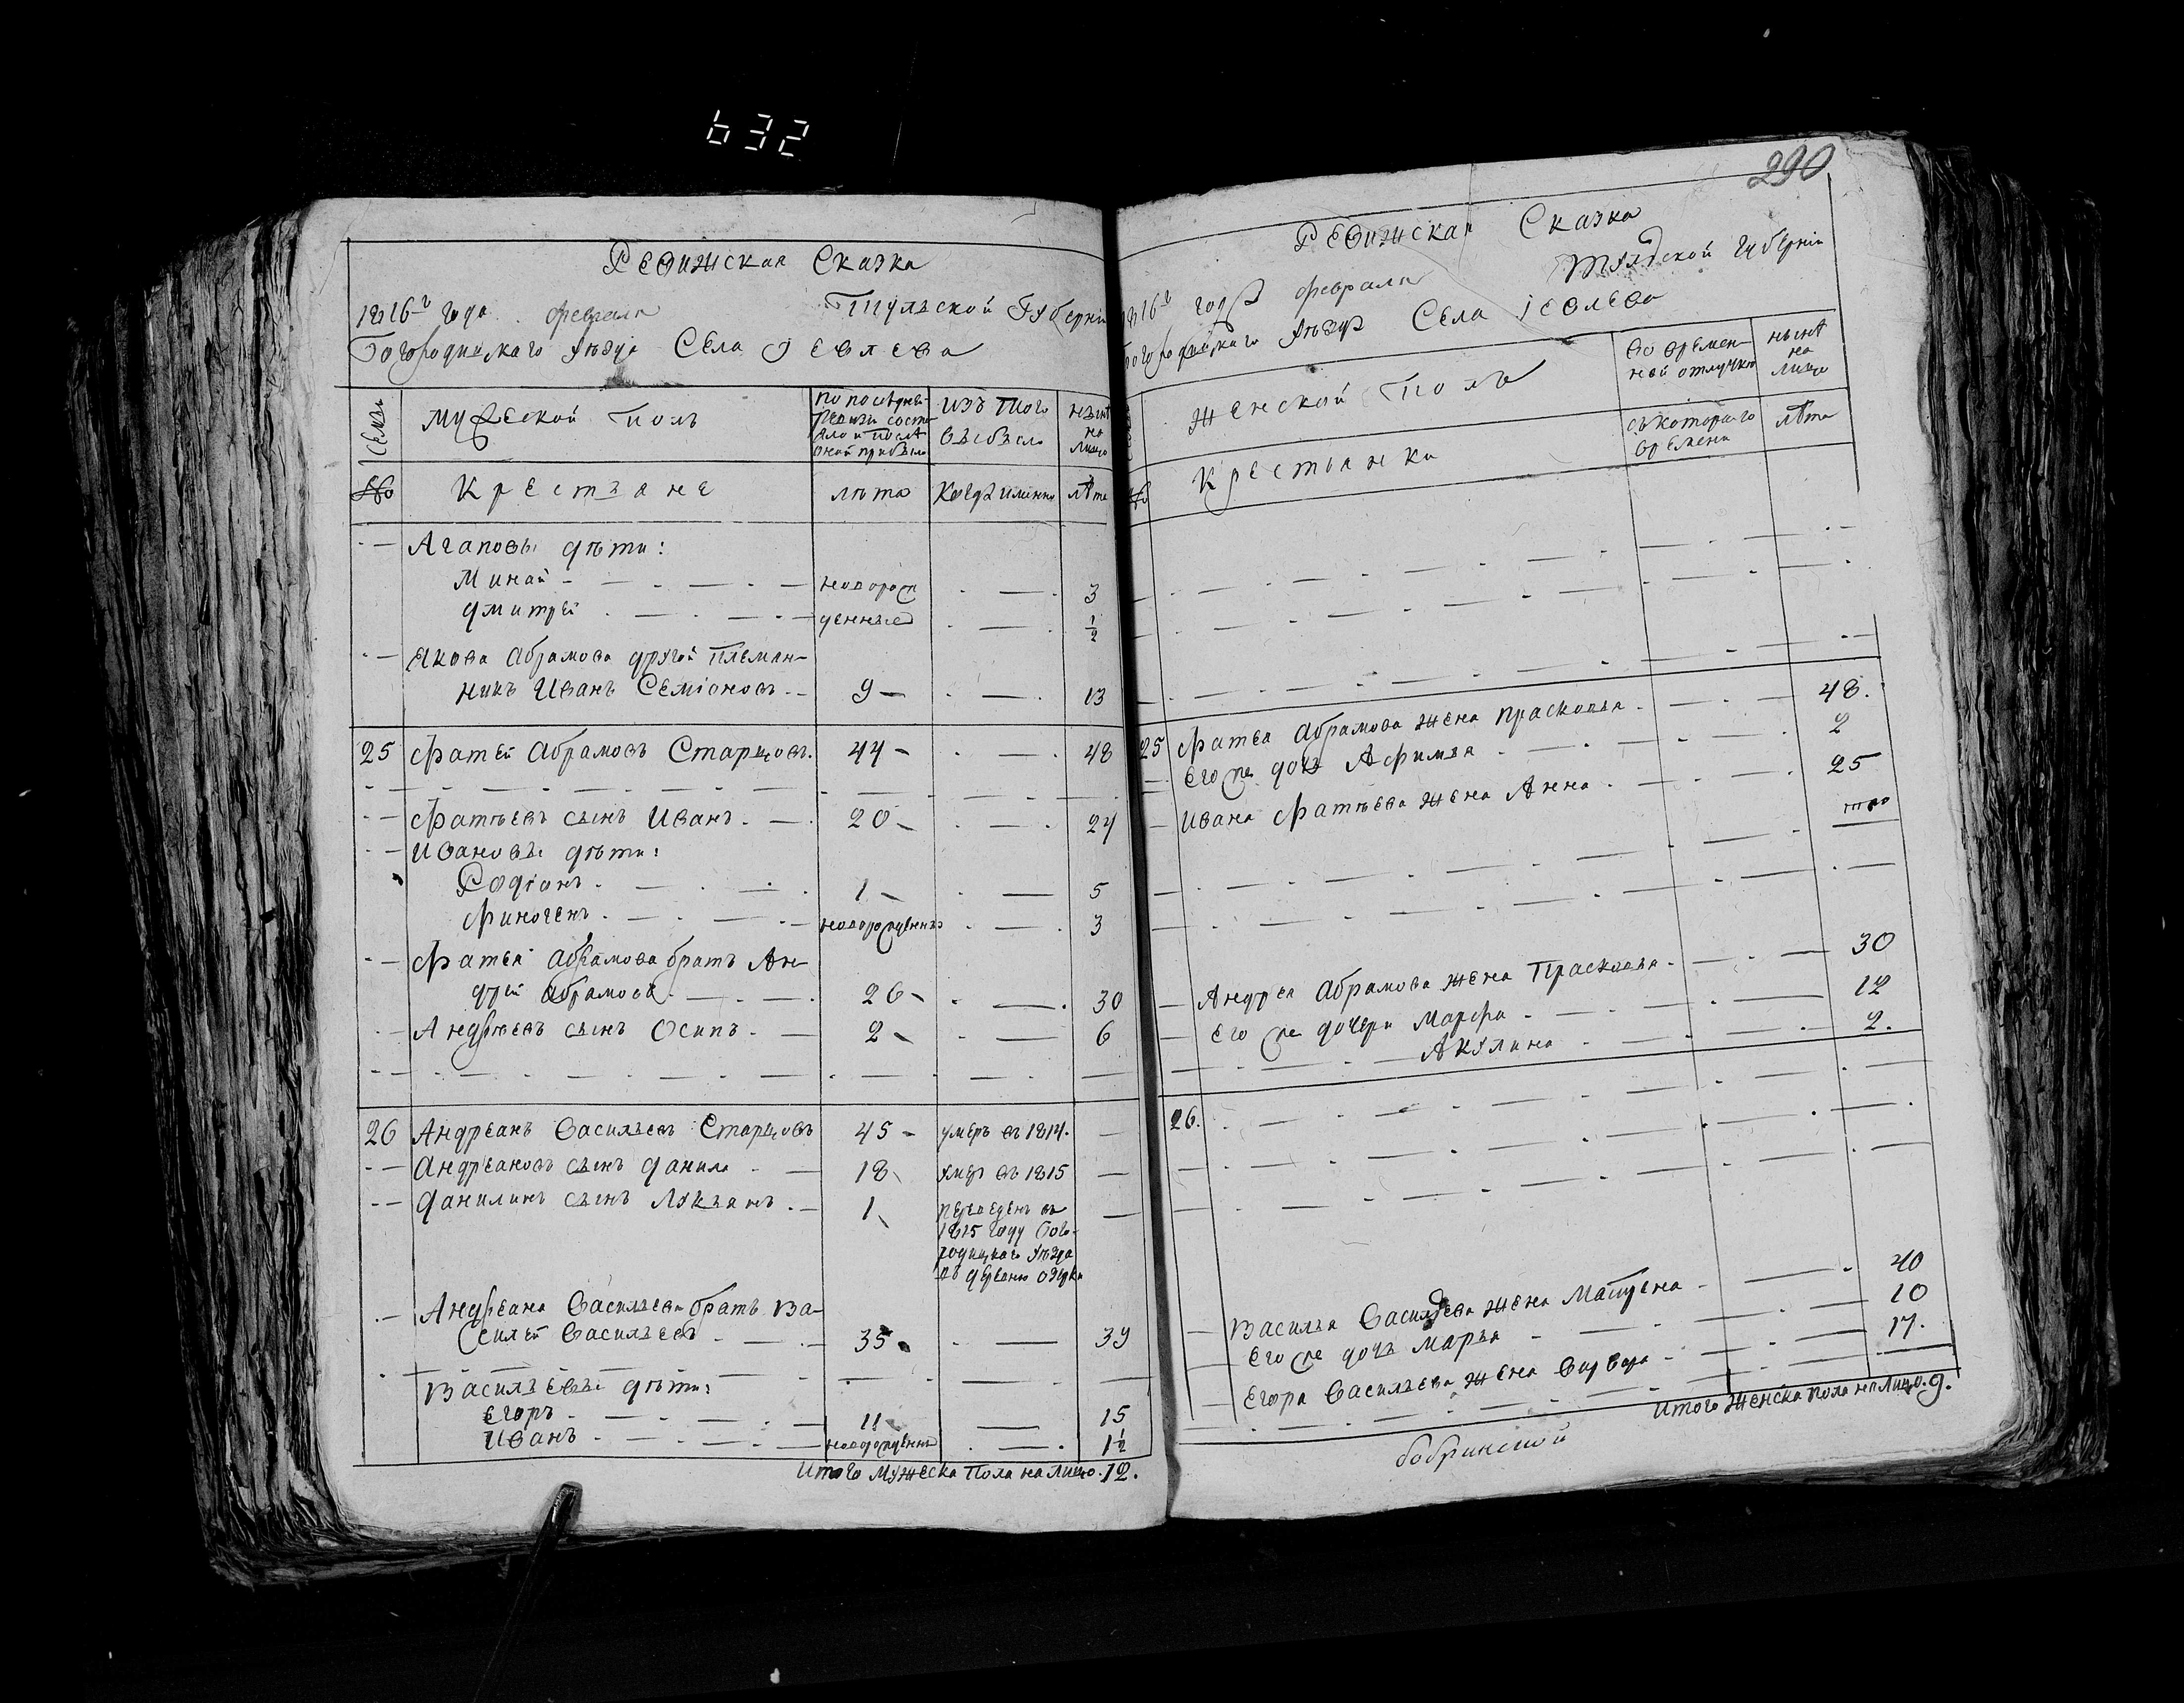 632
290
Ревижская Сказка
1816го года февраля Тульской Губерни
Богородицкаго уѣзда Села Иевлева
№ семьи
Мужеской полъ
по последней ревизи состояло и послѣ оной прибыло
изъ того выбыло
нынѣ на лицо
Крестьяне
лѣта
Когда именно
лѣта
Агаповы дѣти:
Минай
новорож
3
Дмитрей
денные
1/2
Якова Абрамова другой племян-
никъ Иванъ Семіоновъ
9
13
25 Фатей Абрамовъ Старцовъ. 44 48
Фатѣевъ сынъ Иванъ 20 24
Ивановы дѣти:
Родіонъ 1 5
Финогенъ новорожденнъ 3
Фатея Абрамова братъ Ан-
дрей Абрамовъ 26 30
Андрѣевъ сынъ Осипъ 2 6
26 Андреанъ Васильевъ Старцовъ 45 умеръ въ 1814.
Андреановъ сынъ Данила 18 умер въ 1815
Данилинъ сынъ Лукьянъ 1 переведенъ въ
1815 году Бого-
родицкаго уѣзда
въ деревню
Андреана Васильева братъ Ва-
силей Васильевъ 35 39
Васильевы дѣти:
Егоръ 11 15
Иванъ новорожденнъ 1 1/2
Итого мужеска пола на лицо. 12.
Ревижская Сказка
1816го года февраля Тульской Губерніи
Богородицкаго уѣзда Села Иевлева
Женской Полъ
во времен-
ной отлучке
нынѣ
на
лицо
Крестьянки
съ котораго
времени
лѣта
25 Фатея Абрамова жена Прасковья 48.
Его же дочь Афимья 2
Ивана Фатѣева жена Анна 25
Андрея Абрамова жена Прасковья 30
Его же дочери Марфа 12
Акулина 2.
26.
Василья Васильева жена Матрена 40
Его же дочь Марья 10
Егора Васильева жена Варвара 17.
Итого Женска пола налицо. 9.
бобринской